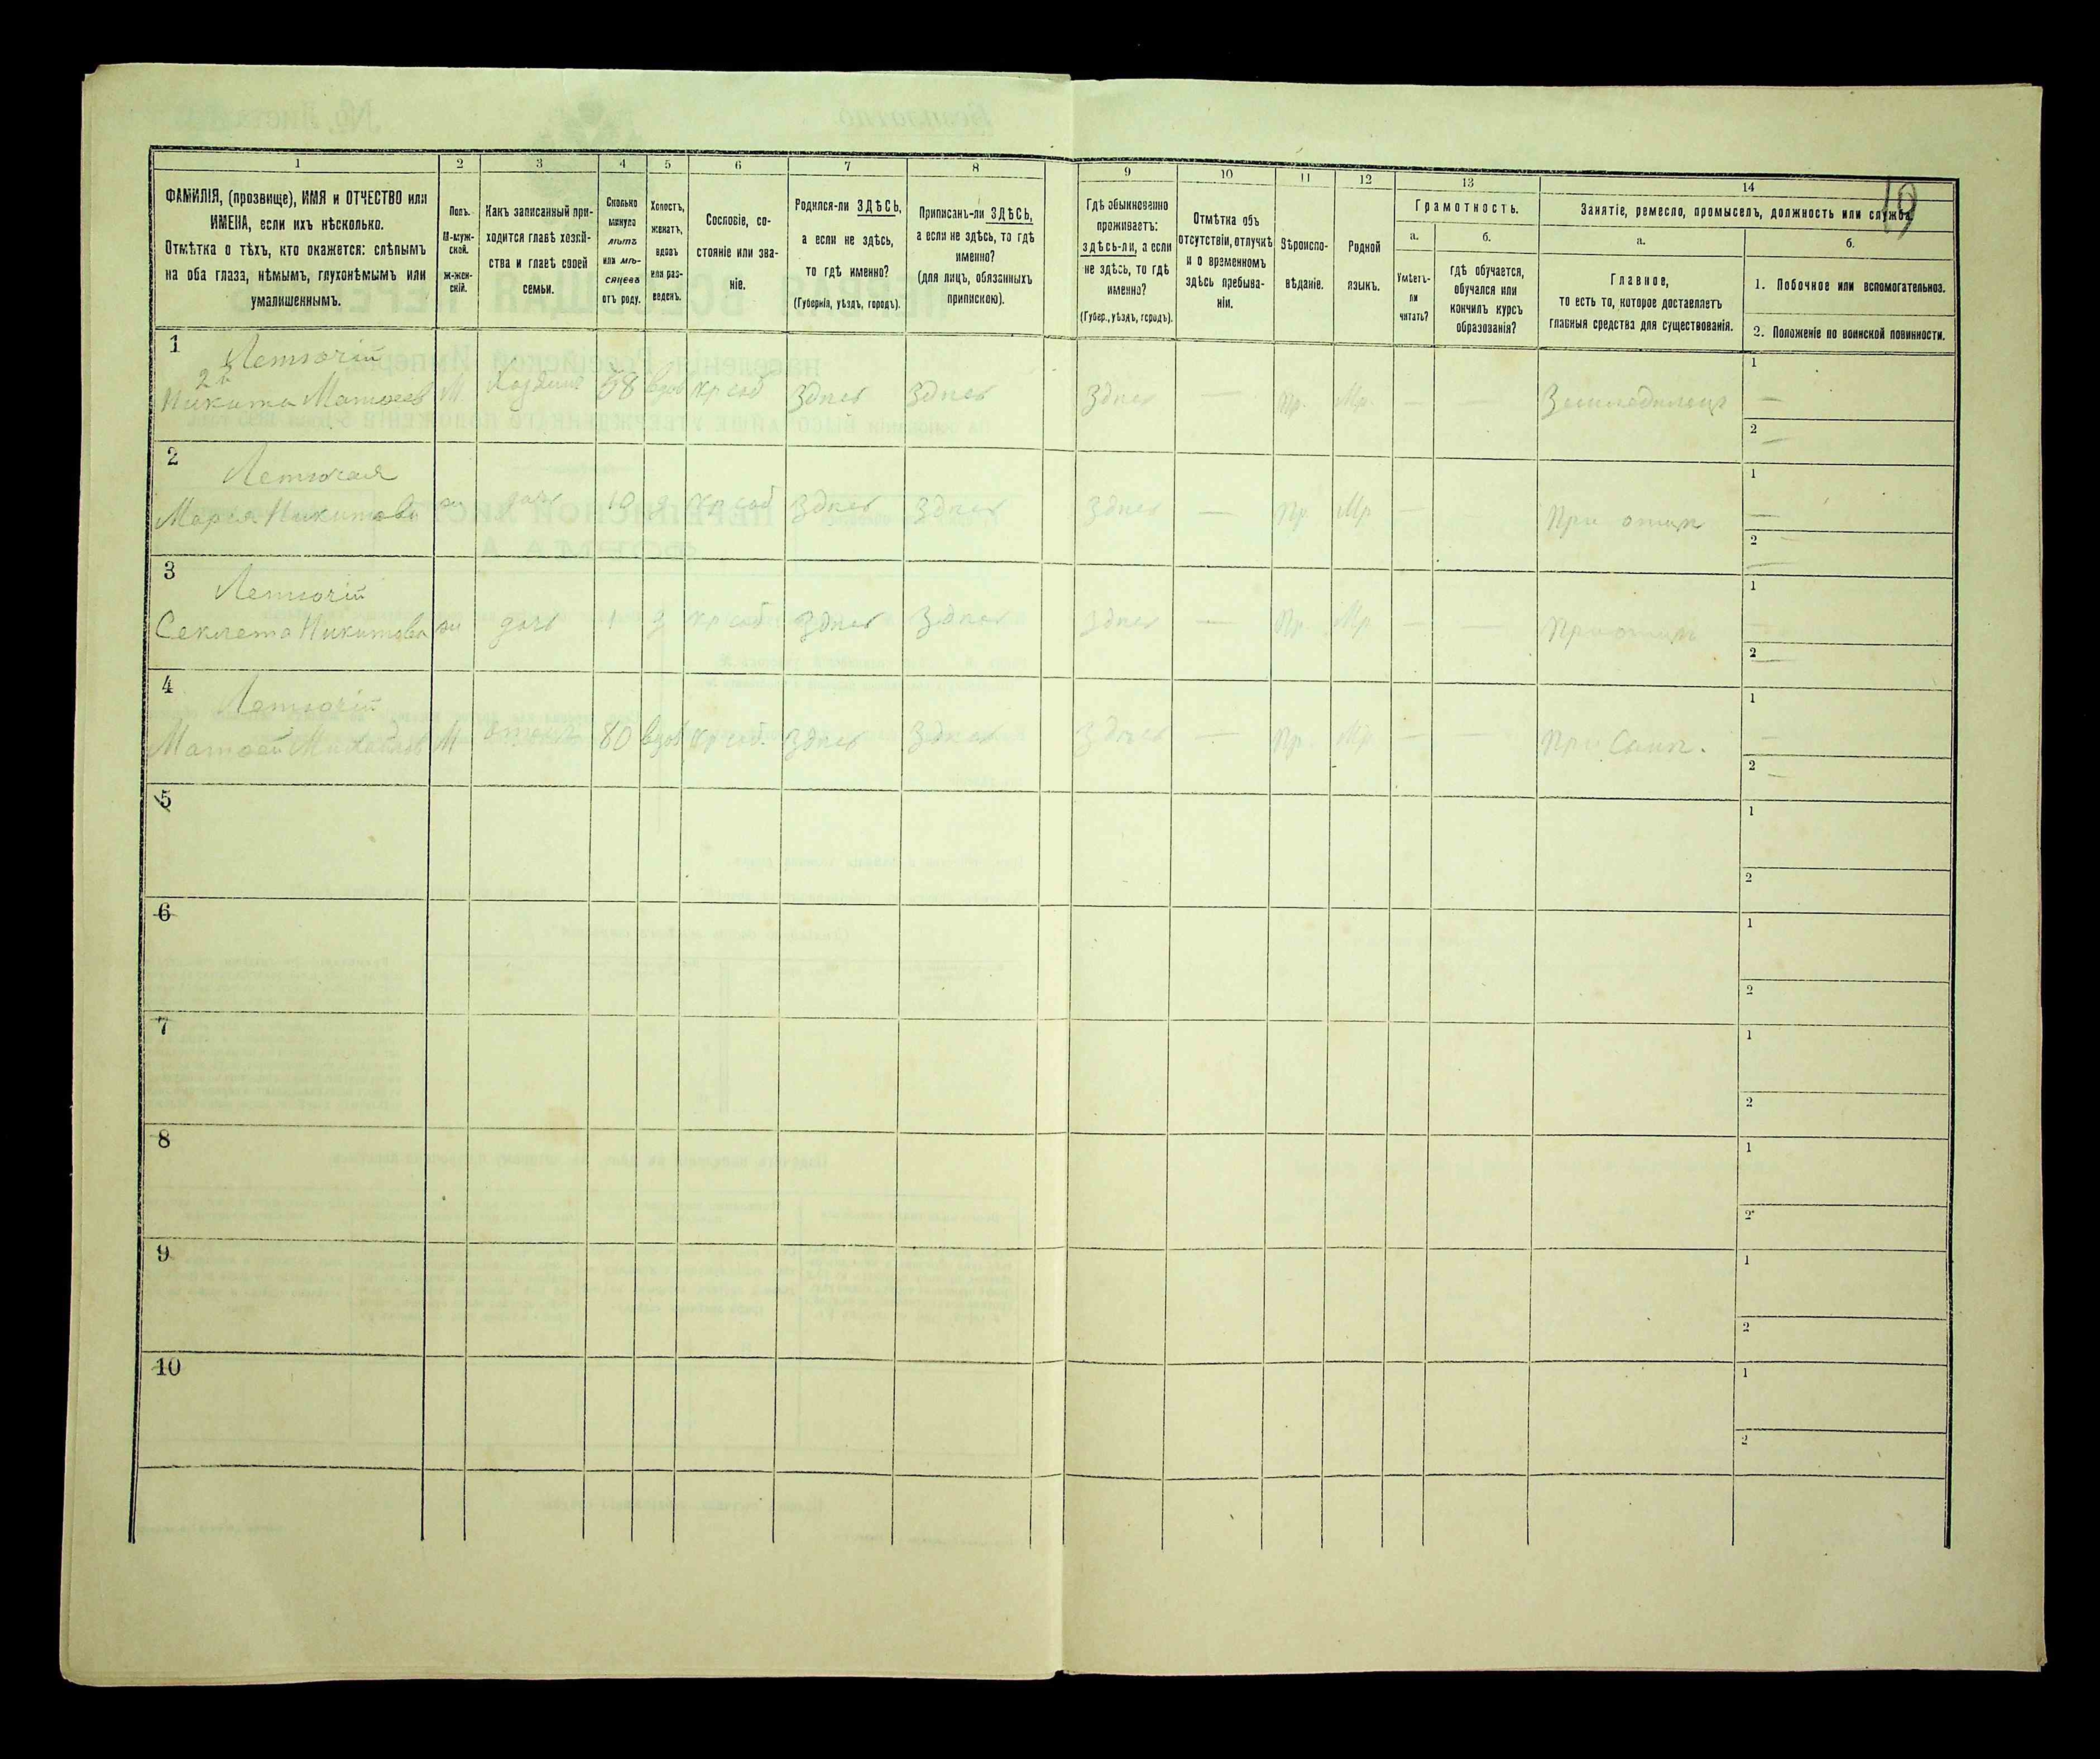 19
1 2 3 4 5 6 7 8 9 10 11 12 13 14
ФАМИЛІЯ, (прозвище), ИМЯ и ОТЧЕСТВО или
ИМЕНА, если ихъ нѣсколько.
Отмѣтка о тѣхъ, кто окажется: слѣпымъ
на оба глаза, нѣмымъ, глухонѣмымъ или
умалишеннымъ.
Полъ.
М-муж-
ской.
ж-жен-
скій.
Какъ записанный при-
ходится главѣ хозяй-
ства и главѣ своей
семьи.
Сколько
минуло
лѣтъ
или мѣ-
сяцевъ
отъ роду.
Холостъ,
женатъ,
вдовъ
или раз-
веденъ.
Сословіе, со-
стояніе или зва-
ніе.
Родился-ли ЗДѢСЬ,
а если не здѣсь,
то гдѣ именно?
(Губернія, уѣздъ, городъ).
Приписанъ-ли ЗДѢСЬ,
а если не здѣсь, то гдѣ
именно?
(для лицъ, обязанныхъ
припискою).
Гдѣ обыкновенно
проживаетъ:
здѣсь-ли, а если
не здѣсь, то гдѣ
именно?
(Губер., уѣздъ, городъ).
Отмѣтка объ
отсутствіи, отлучкѣ
и о временномъ
здѣсь пребыва-
ніи.
Вѣроиспо-
вѣданіе.
Родной
языкъ.
Грамотность.
а.
Умѣетъ-
ли
читать?
б.
гдѣ обучается,
обучался или
кончилъ курсъ
образованія?
Занятіе, ремесло, промыселъ, должность или служба.
а.
Главное,
то есть то, которое доставляетъ
главныя средства для существованія.
б.
1. Побочное или вспомогательное.
2. Положеніе по воинской повинности.
1 Летючій 1
2й
Никита Матвѣев М. Хозяинъ 58 вдов кр соб Здесь Здесь Здесь — Пр. Мр. — — Земледелецъ —
2 —
2 Летючая 1
Мария Никитова ж дочь 10 д кр соб Здесь Здесь Здесь — Пр. Мр — — При отцѣ —
2 —
3 Летючій 1
Секлета Никитова ж дочь 1 д кр соб Здесь Здесь Здесь — Пр. Мр — — При отцѣ —
2 —
4 Летючій 1
Матвей Михайлов М отецъ 80 вдов кр соб. Здесь Здесь Здесь — Пр. Мр. — — При Сынѣ. —
2 —
5 1
2
6 1
2
7 1
2
8 1
2
9 1
2
10 1
2